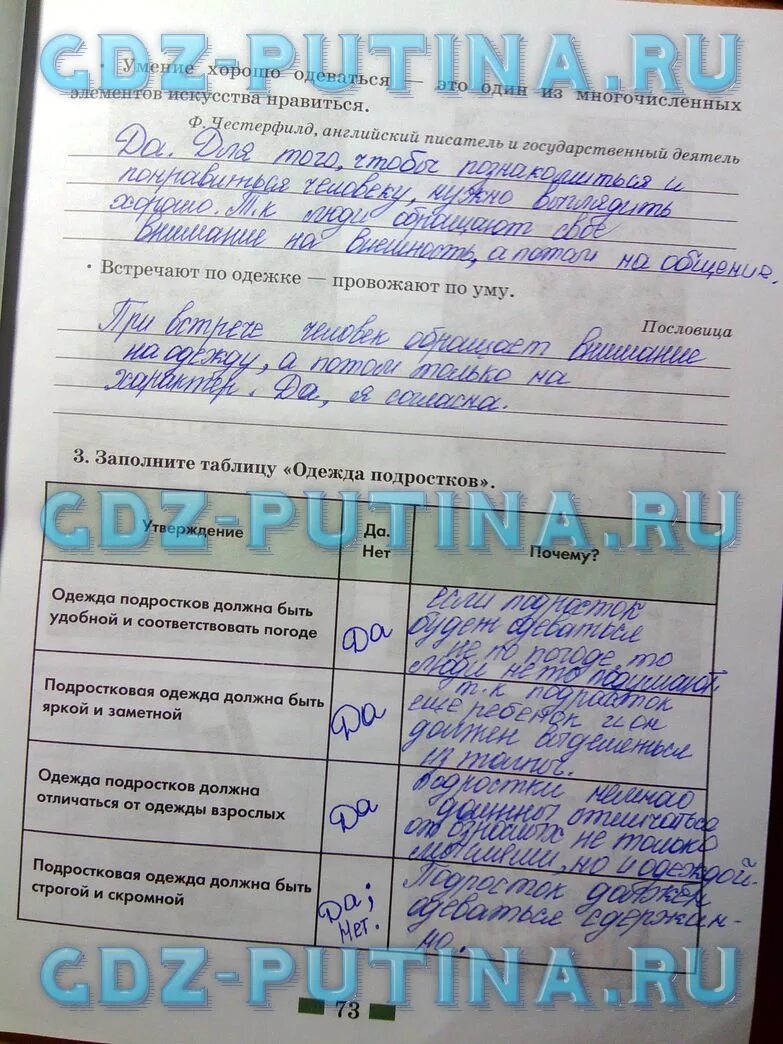 GDZ-PUTINA.RU
• Умение хорошо одеваться — это один из многочисленных
элементов искусства нравиться.
Ф. Честерфилд, английский писатель и государственный деятель
Да. Для того, чтобы познакомиться и
понравиться человеку, нужно выглядить
хорошо. Т.к люди обращают своё
внимание на внешность, а потом на общение.
• Встречают по одежке — провожают по уму.
Пословица
При встрече человек обращает внимание
на одежду, а потом только на
характер. Да, я согласна.
3. Заполните таблицу «Одежда подростков».
GDZ-PUTINA.RU
Утверждение
Да.
Нет
Почему?
Одежда подростков должна быть
удобной и соответствовать погоде
Да
если подросток
будет одеваться
не по погоде, то
люди не то подумают
Подростковая одежда должна быть
яркой и заметной
Да
т.к подросток
ещё ребёнок и он
должен выделяться
из толпы.
Одежда подростков должна
отличаться от одежды взрослых
Да
Подростки немного
должны отличаться
от взрослых не только
мыслями, но и одеждой.
Подростковая одежда должна быть
строгой и скромной
Да;
Нет.
Подросток должен
одеваться сдержан-
но.
GDZ-PUTINA.RU
73